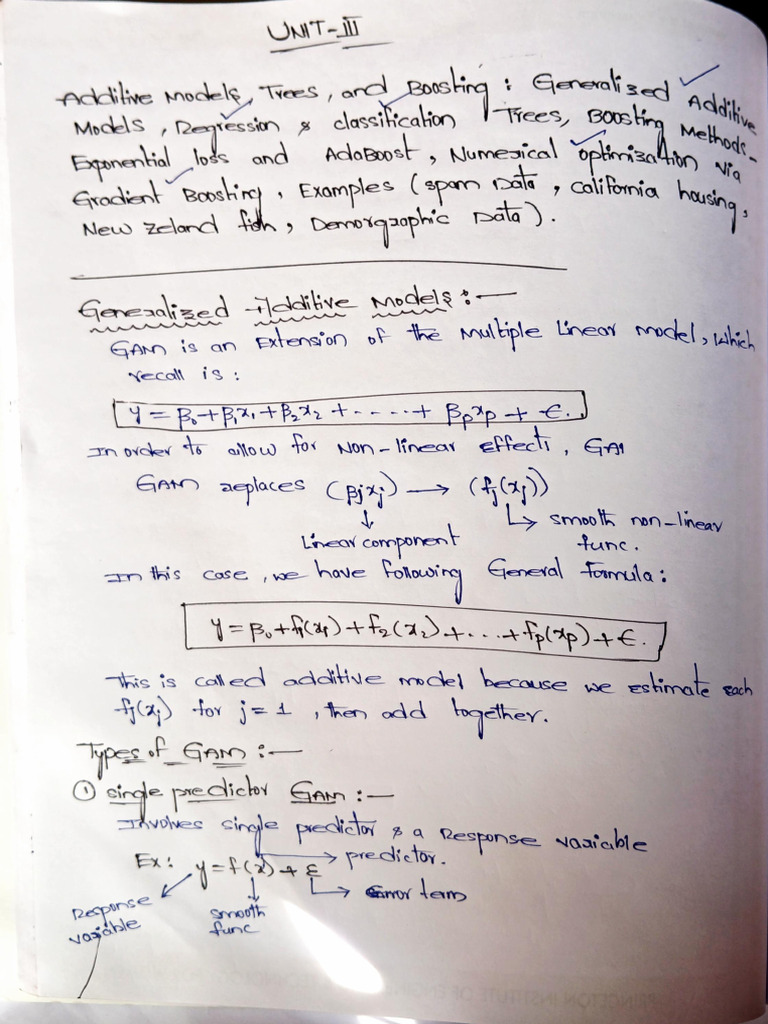 UNIT-III
Additive Models, Trees, and Boosting : Generalized Additive
Models, Regression & classification Trees, Boosting Methods-
Exponential loss and AdaBoost, Numerical optimization via
Gradient Boosting, Examples (spam Data, california housing,
New Zeland fish, Demorgraphic Data).
Generalized Additive Models :-
GAM is an Extension of the Multiple Linear model, which
recall is :
y = β₀+β₁x₁+β₂x₂ +-----+ βpxp + ϵ.
In order to allow for Non-linear effects, GA
GAM replaces (βjxj) → (fj(xj))
↓ ↳ smooth non-linear
Linear component func.
In this case, we have following General Formula:
y = β₀+f₁(x₁)+f₂(x₂)+...+fp(xp)+ϵ.
This is called additive model because we estimate each
fj(xj) for j=1, then add together.
Types of GAM :-
① single predictor GAM :-
Involves single predictor & a Response variable
Ex: y=f(x)+ε → predictor.
Response variable ↓ smooth func ↳ error term